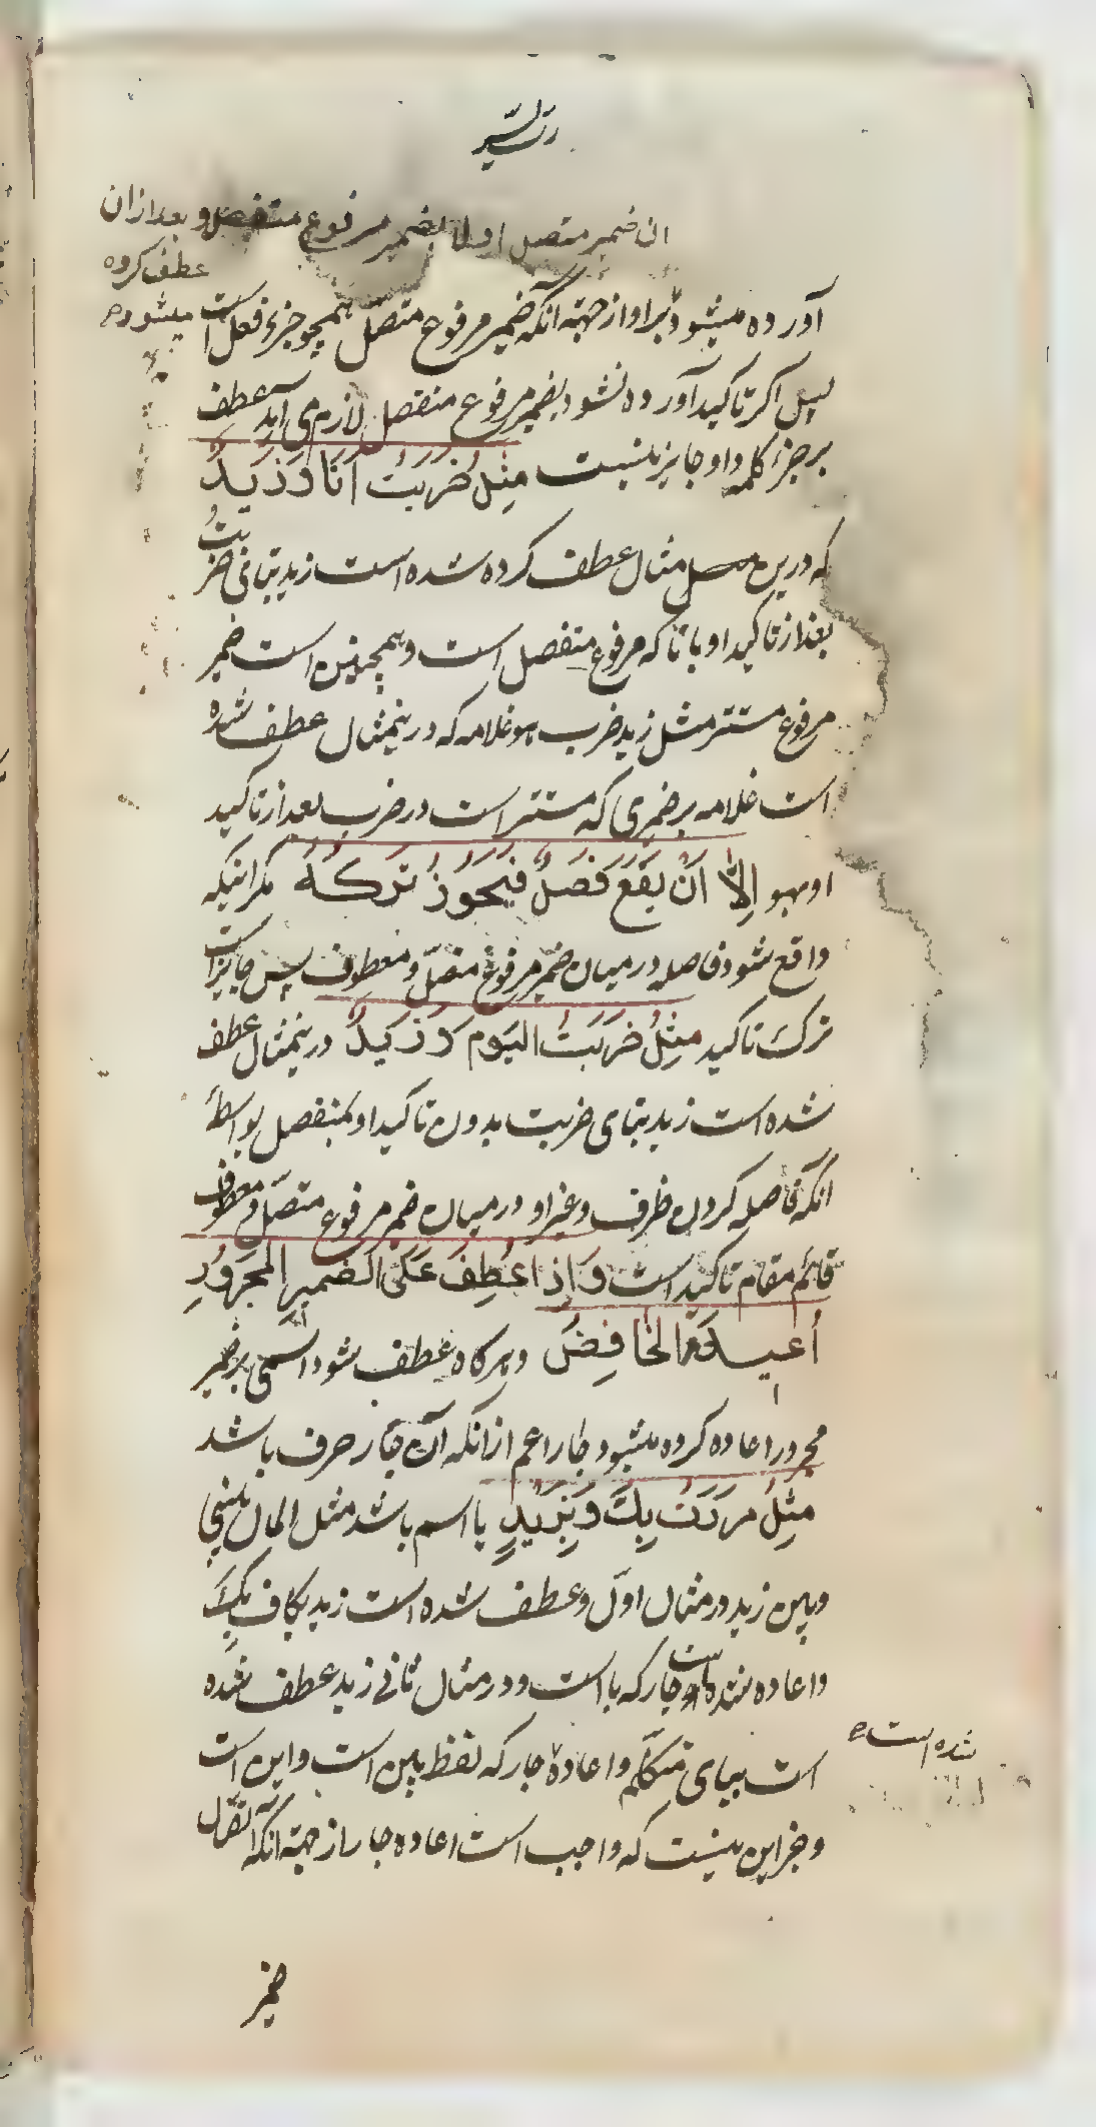 ان ضمیر متصل اولا بضمیر مرفوع منفصل و بعد ازان
عطف کرده
میشود
آورده میشود براو از جهة آنکه ضمیر مرفوع متصل همچو جزء فعل است
پس اکر تاکید آورده نشود بضمیر مرفوع منفصل لازم می آید عطف
بر جزء کلمه و او جایز نیست مِثلُ ضَرَبتُ اَنَا وَ زَیدٌ
که درین مثال عطف کرده شده است زید بتای ضربتُ
بعد از تاکید او بانا که مرفوع منفصل است و همچنین است ضمیر
مرفوع مستتر مثل زید ضرب هو غلامه که درینمثال عطف شده
است غلامه بر ضمیری که مستتر است در ضرب بعد از تاکید
او بهو اِلاّ اَنْ یَقَعَ فَصلٌ فَیَجُوزُ تَرکُهُ مکر اینکه
واقع شود فاصله در میان ضمیر مرفوع متصل و معطوف پس جایز است
ترک تاکید مِثلُ ضَرَبتُ الیَومَ وَ زَیدٌ درینمثال عطف
شده است زید بتای ضربت بدون تاکید او بمنفصل بواسطهٔ
آنکه فاصله کردن ظرف و غیر او در میان ضمیر مرفوع متصل و معطوف
قائم مقام تاکید است وَ اِذا عُطِفَ عَلَی الضَمیرِ المَجرُورِ
اُعیدَ الخافِضُ و هرکاه عطف شود اسمی بر ضمیر
مجرور اعاده کرده میشود جار اعم از انکه آن جار حرف باشد
مِثلُ مَرَرتُ بِکَ وَ بِزَیدٍ یا اسم باشد مثل المال بینی
و بین زید در مثال اوّل عطف شده است زید بکاف بِکَ
و اعاده شده است جار که با است و در مثال ثانی زید عطف شده
شده است
است بیای متکلّم و اعادهٔ جار که لفظ بین است و این است
و جز این نیست که واجب است اعاده جار از جهة آنکه اتّصال
ضمیر